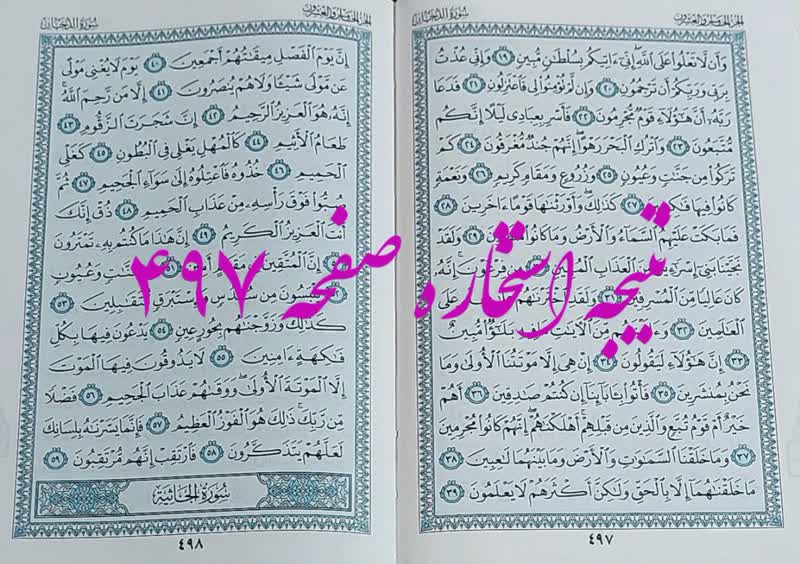 الجزء الخامس والعشرون
سُورَةُ الدُّخَان
وَأَن لَّا تَعْلُوا۟ عَلَى ٱللَّهِ إِنِّىٓ ءَاتِيكُم بِسُلْطَٰنٍ مُّبِينٍ ١٩ وَإِنِّى عُذْتُ
بِرَبِّى وَرَبِّكُمْ أَن تَرْجُمُونِ ٢٠ وَإِن لَّمْ تُؤْمِنُوا۟ لِى فَٱعْتَزِلُونِ ٢١ فَدَعَا
رَبَّهُۥٓ أَنَّ هَٰٓؤُلَآءِ قَوْمٌ مُّجْرِمُونَ ٢٢ فَأَسْرِ بِعِبَادِى لَيْلًا إِنَّكُم
مُّتَّبَعُونَ ٢٣ وَٱتْرُكِ ٱلْبَحْرَ رَهْوًا إِنَّهُمْ جُندٌ مُّغْرَقُونَ ٢٤ كَمْ
تَرَكُوا۟ مِن جَنَّٰتٍ وَعُيُونٍ ٢٥ وَزُرُوعٍ وَمَقَامٍ كَرِيمٍ ٢٦ وَنَعْمَةٍ
كَانُوا۟ فِيهَا فَٰكِهِينَ ٢٧ كَذَٰلِكَ وَأَوْرَثْنَٰهَا قَوْمًا ءَاخَرِينَ ٢٨
فَمَا بَكَتْ عَلَيْهِمُ ٱلسَّمَآءُ وَٱلْأَرْضُ وَمَا كَانُوا۟ مُنظَرِينَ ٢٩ وَلَقَدْ
نَجَّيْنَا بَنِىٓ إِسْرَٰٓءِيلَ مِنَ ٱلْعَذَابِ ٱلْمُهِينِ ٣٠ مِن فِرْعَوْنَ إِنَّهُۥ
كَانَ عَالِيًا مِّنَ ٱلْمُسْرِفِينَ ٣١ وَلَقَدِ ٱخْتَرْنَٰهُمْ عَلَىٰ عِلْمٍ عَلَى
ٱلْعَٰلَمِينَ ٣٢ وَءَاتَيْنَٰهُم مِّنَ ٱلْءَايَٰتِ مَا فِيهِ بَلَٰٓؤٌا۟ مُّبِينٌ
٣٣ إِنَّ هَٰٓؤُلَآءِ لَيَقُولُونَ ٣٤ إِنْ هِىَ إِلَّا مَوْتَتُنَا ٱلْأُولَىٰ وَمَا
نَحْنُ بِمُنشَرِينَ ٣٥ فَأْتُوا۟ بِـَٔابَآئِنَآ إِن كُنتُمْ صَٰدِقِينَ ٣٦ أَهُمْ
خَيْرٌ أَمْ قَوْمُ تُبَّعٍ وَٱلَّذِينَ مِن قَبْلِهِمْ أَهْلَكْنَٰهُمْ إِنَّهُمْ كَانُوا۟ مُجْرِمِينَ
٣٧ وَمَا خَلَقْنَا ٱلسَّمَٰوَٰتِ وَٱلْأَرْضَ وَمَا بَيْنَهُمَا لَٰعِبِينَ ٣٨
مَا خَلَقْنَٰهُمَآ إِلَّا بِٱلْحَقِّ وَلَٰكِنَّ أَكْثَرَهُمْ لَا يَعْلَمُونَ ٣٩
٤٩٧
الجزء الخامس والعشرون
سُورَةُ الدُّخَان
إِنَّ يَوْمَ ٱلْفَصْلِ مِيقَٰتُهُمْ أَجْمَعِينَ ٤٠ يَوْمَ لَا يُغْنِى مَوْلًى
عَن مَّوْلًى شَيْـًٔا وَلَا هُمْ يُنصَرُونَ ٤١ إِلَّا مَن رَّحِمَ ٱللَّهُ
إِنَّهُۥ هُوَ ٱلْعَزِيزُ ٱلرَّحِيمُ ٤٢ إِنَّ شَجَرَتَ ٱلزَّقُّومِ ٤٣
طَعَامُ ٱلْأَثِيمِ ٤٤ كَٱلْمُهْلِ يَغْلِى فِى ٱلْبُطُونِ ٤٥ كَغَلْىِ
ٱلْحَمِيمِ ٤٦ خُذُوهُ فَٱعْتِلُوهُ إِلَىٰ سَوَآءِ ٱلْجَحِيمِ ٤٧ ثُمَّ
صُبُّوا۟ فَوْقَ رَأْسِهِۦ مِنْ عَذَابِ ٱلْحَمِيمِ ٤٨ ذُقْ إِنَّكَ
أَنتَ ٱلْعَزِيزُ ٱلْكَرِيمُ ٤٩ إِنَّ هَٰذَا مَا كُنتُم بِهِۦ تَمْتَرُونَ
٥٠ إِنَّ ٱلْمُتَّقِينَ فِى مَقَامٍ أَمِينٍ ٥١ فِى جَنَّٰتٍ وَعُيُونٍ
٥٢ يَلْبَسُونَ مِن سُندُسٍ وَإِسْتَبْرَقٍ مُّتَقَٰبِلِينَ ٥٣
كَذَٰلِكَ وَزَوَّجْنَٰهُم بِحُورٍ عِينٍ ٥٤ يَدْعُونَ فِيهَا بِكُلِّ
فَٰكِهَةٍ ءَامِنِينَ ٥٥ لَا يَذُوقُونَ فِيهَا ٱلْمَوْتَ
إِلَّا ٱلْمَوْتَةَ ٱلْأُولَىٰ وَوَقَىٰهُمْ عَذَابَ ٱلْجَحِيمِ ٥٦ فَضْلًا
مِّن رَّبِّكَ ذَٰلِكَ هُوَ ٱلْفَوْزُ ٱلْعَظِيمُ ٥٧ فَإِنَّمَا يَسَّرْنَٰهُ بِلِسَانِكَ
لَعَلَّهُمْ يَتَذَكَّرُونَ ٥٨ فَٱرْتَقِبْ إِنَّهُم مُّرْتَقِبُونَ ٥٩
سُورَةُ الجَاثِيَة
٤٩٨
نتیجه استخاره صفحه ۴۹۷